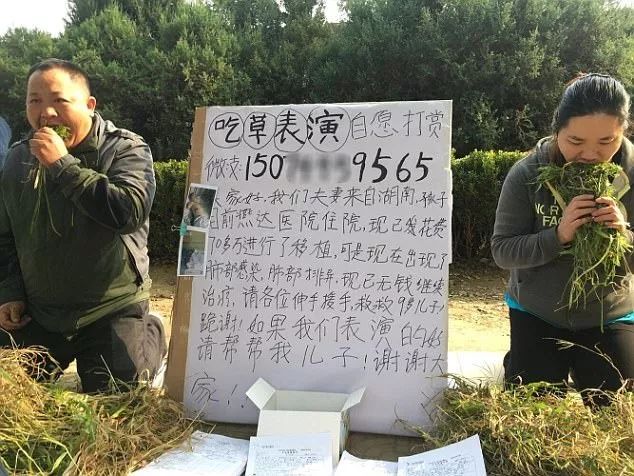 吃草表演自愿打赏
微信:150 9565
家好,我们夫妻来自湖南,孩子
目前燕达医院住院,现已发花费
70多万进行了移植,可是现在出现了
肺部感染,肺部排异,现已无钱继续
治疗,请各位伸手援手,救救9岁儿子
跪谢!如果我们表演的好
请帮帮我儿子!谢谢大
家!